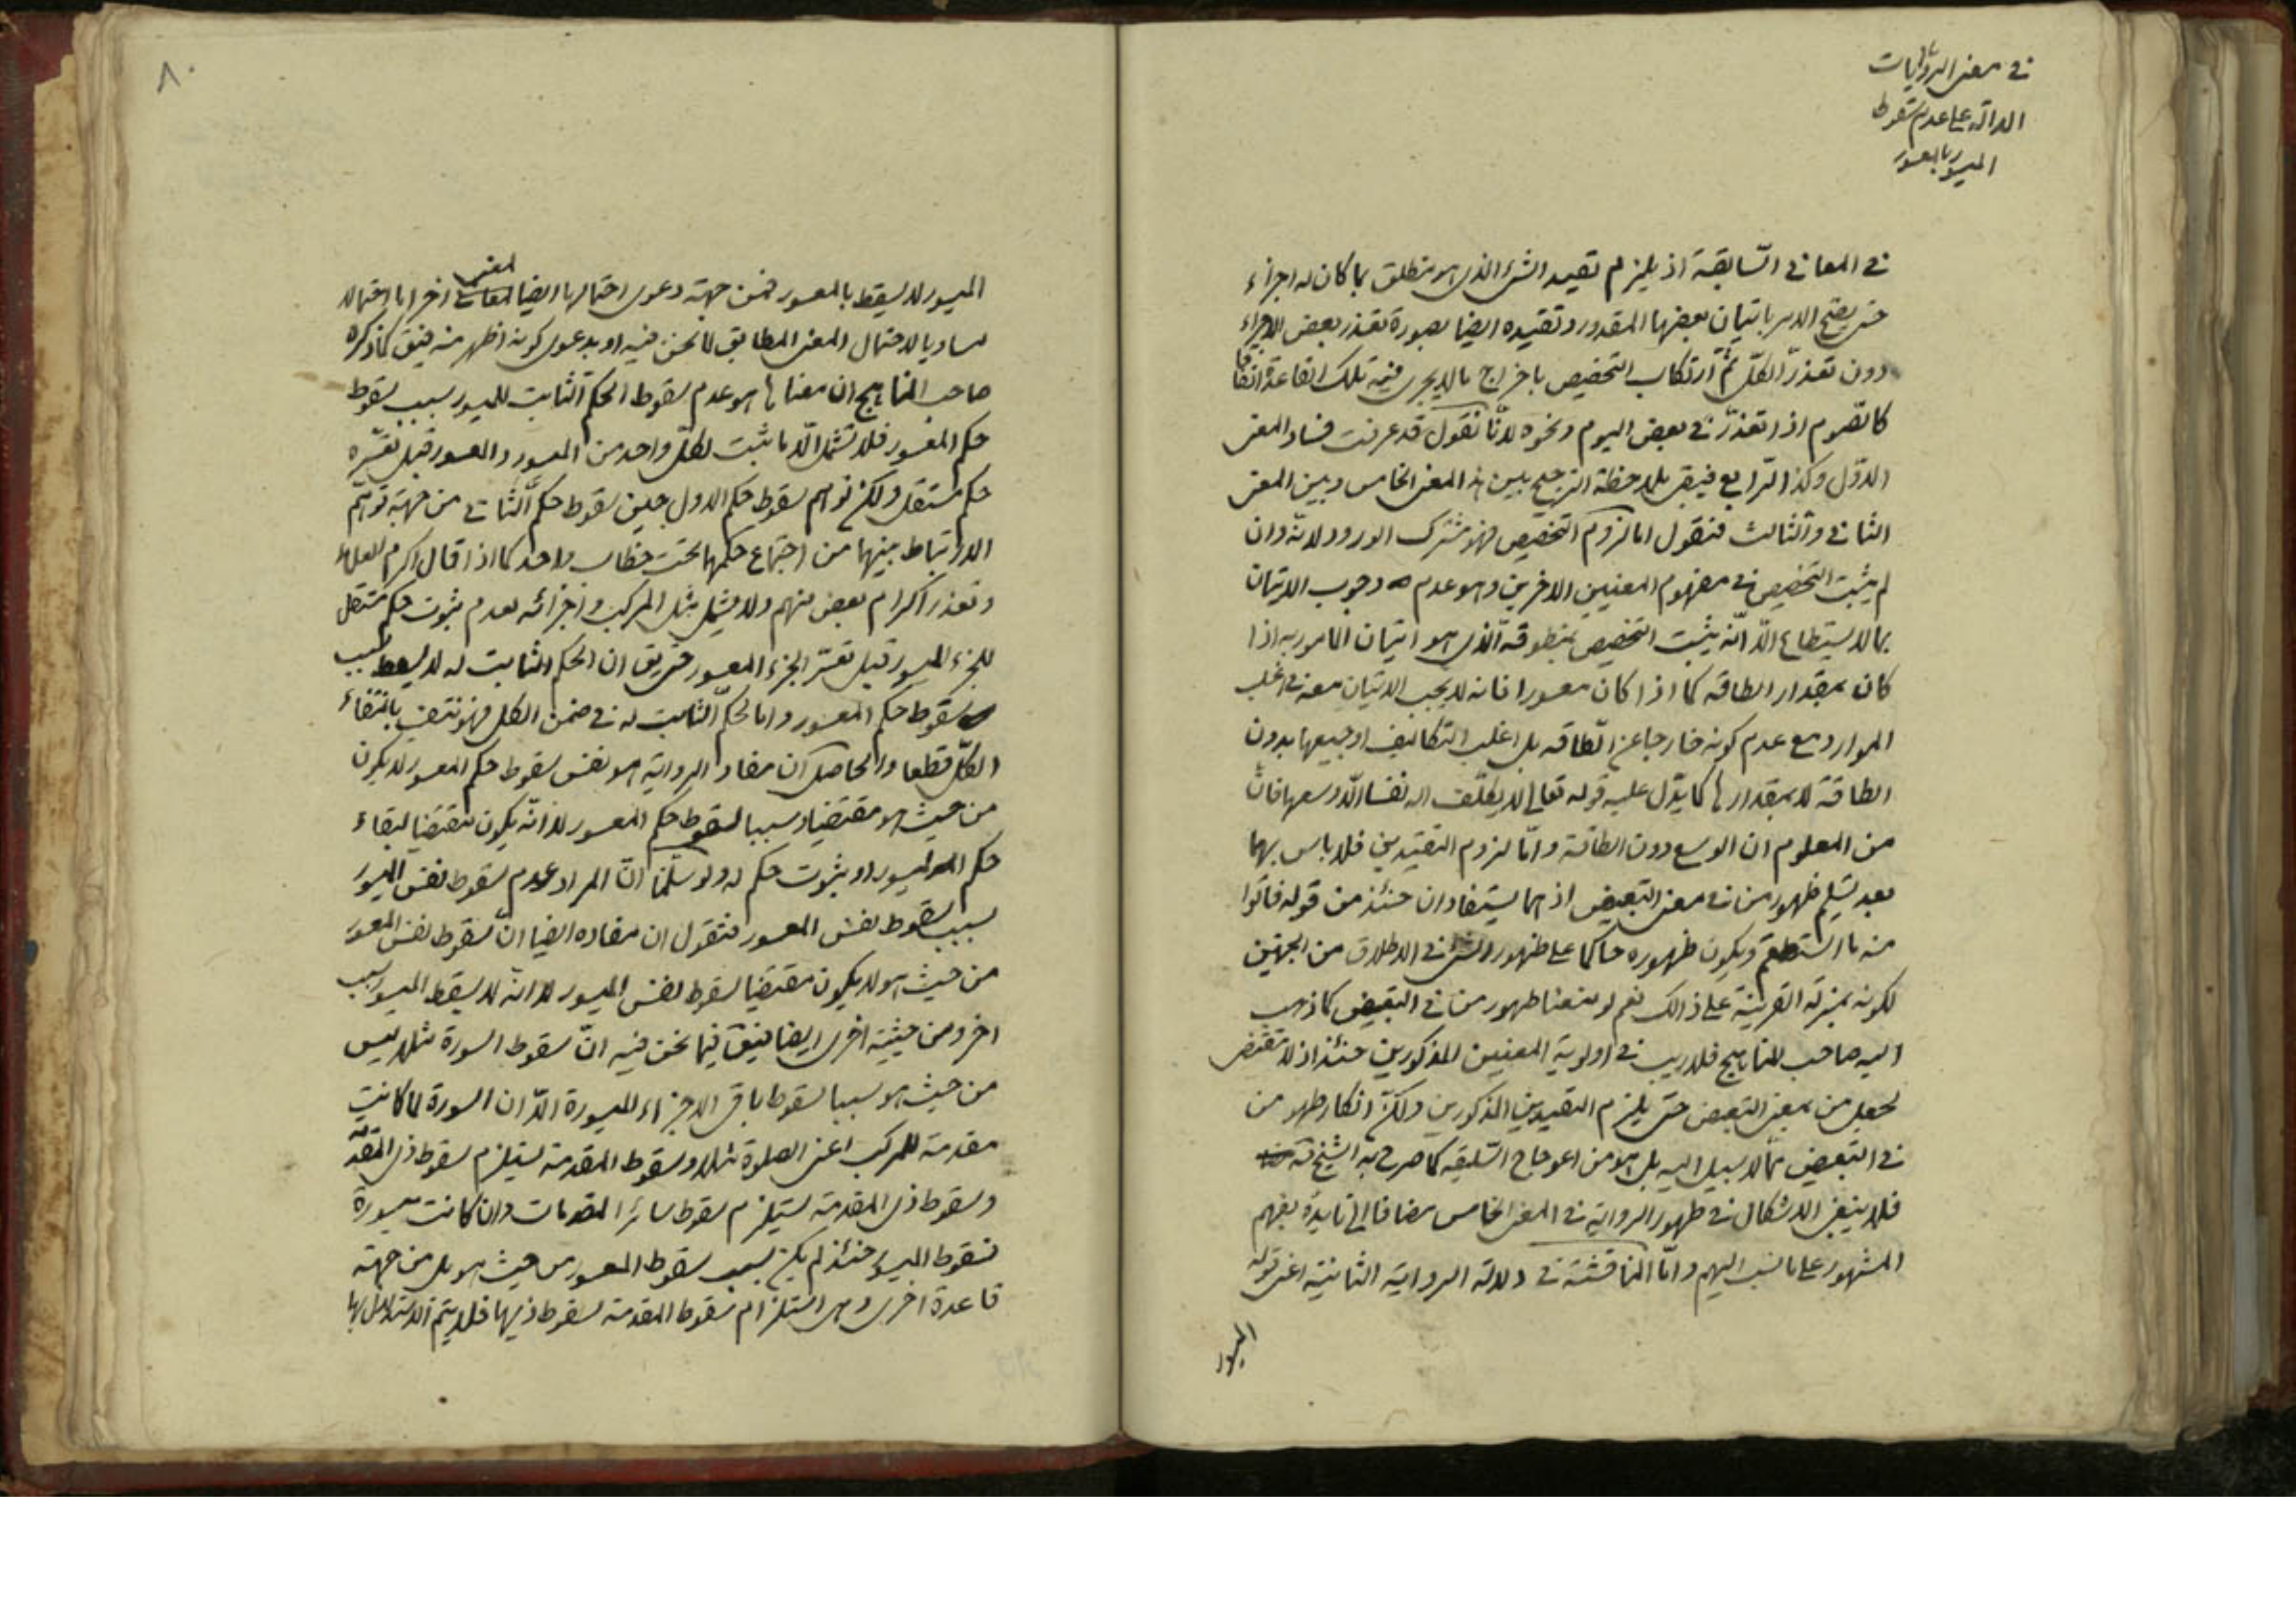 في معنى الروايات
الدالة على عدم سقوط
الميسور بالمعسور
في المعاني السّابقة اذ يلزم تقييد الشئ الذي هو مطلق بما كان له اجزاء
حتى يصح الامر باتيان بعضها المقدور وتقييده ايضا بصورة تعذر بعض الاجزاء
دون تعذّر الكلّ ثمّ ارتكاب التخصيص باخراج ما لا يجرى فيه تلك القاعدة اتفاقا
كالصّوم اذا تعذّر في بعض اليوم ونحوه لانّا نقول قد عرفت فساد المعنى
الاوّل وكذا الرّابع فيبقى ملاحظة الترجيح بين هذا المعنى الخامس وبين المعنى
الثاني والثالث فنقول اما لزوم التخصيص فهو مشترك الورود لانّه وان
لم يثبت التخصيص في مفهوم المعنيين الاخرين وهو عدم وجوب الاتيان
بما لا يستطاع الّا انّه يثبت التخصيص بمنطوقه الّذى هو اتيان المامور به اذا
كان بمقدار الطاقه كما اذا كان معسورا فانه لا يجب الاتيان معه في اغلب
الموارد مع عدم كونه خارجا عن الطّاقه بل اغلب التكاليف او جميعها بدون
الطاقة لا بمقدارها كما يدّل عليه قوله تعالى لا يكلّف الله نفسا الّا وسعها فانّ
من المعلوم ان الوسع دون الطاقة وامّا لزوم التقييدين فلا باس بهما
بعد تسليم ظهور من في معنى التبعيض اذ هما يستفادان حنئذ من قوله فاتوا
منه ما استطعتم ويكون ظهوره حاكما على ظهور الشئ في الاطلاق من الجهتين
لكونه بمنزلة القرينة على ذالك نعم لو منعنا ظهور من في التبعيض كما ذهب
اليه صاحب المناهج فلا ريب في اولوية المعنيين المذكورين حنئذ اذ لا مقتضى
لجعل من بمعنى التبعيض حتى يلزم التقييدين المذكورين ولكنّ انكار ظهور من
في التبعيض ممّا لا سبيل اليه بل هو من اعوجاج السّليقه كما صرح به الشيخ
فلا ينبغي الاشكال في ظهور الرواية في المعنى الخامس مضافا الى تايده بفهم
المشهور على ما نسب اليهم وامّا المناقشة في دلالة الرواية الثانية اعنى قوله
الميسور
٨٠
الميسور لا يسقط بالمعسور فمن جهة دعوى احتمالها ايضا لمعنى اخر اما احتمالا
مساويا لاحتمال المعنى المطابق لما نحن فيه او بدعوى كونه اظهر منه فيق كما ذكره
صاحب المناهج ان معناها هو عدم سقوط الحكم الثابت للميسور بسبب سقوط
حكم المعسور فلا تشمل الّا ما ثبت لكل واحد من الميسور والمعسور قبل تعسّره
حكم مستقل ولكن توهم سقوط حكم الاول حين سقوط حكم الثاني من جهة توهّم
الارتباط بينهما من اجتماع حكمهما تحت خطاب واحد كما اذا قال اكرم العلماء
وتعذر اكرام بعض منهم ولا يشمل مثل المركب واجزائه لعدم ثبوت حكم مستقل
للجزء الميسور قبل تعسّر الجزء المعسور حتى يق ان الحكم الثابت له لا يسقط بسبب
سقوط حكم المعسور واما الحكم الثّابت له في ضمن الكل فهو منتف بانتفاء
الكلّ قطعا والحاصل ان مفاد الرواية هو نفس سقوط حكم المعسور لا يكون
من حيث هو مقتضيا وسببا لسقوط حكم الميسور لا انّه يكون مقتضيا لبقاء
حكم الميسور او بثبوت حكم له ولو سلّمنا انّ المراد عدم سقوط نفس الميسور
بسبب سقوط نفس المعسور فنقول ان مفاده ايضا انّ سقوط نفس المعسور
من حيث هو لا يكون مقتضيا لسقوط نفس الميسور لا انّه لا يسقط الميسور بسبب
اخر ومن حيثية اخرى ايضا فيق فيما نحن فيه انّ سقوط السورة مثلا ليس
من حيث هو سببا لسقوط باقى الاجزاء الميسورة الّا ان السورة لما كانت
مقدمة للمركب اعنى الصلوة مثلا وسقوط المقدمة يستلزم سقوط ذى المقدّمة
وسقوط ذى المقدمة يستلزم سقوط سائر المقدمات وان كانت ميسورة
فسقوط الميسور حنئذ لم يكن بسبب سقوط المعسور من حيث هو بل من جهة
قاعدة اخرى وهى استلزام سقوط المقدمة لسقوط ذيها فلا يتم الاستدلال بها